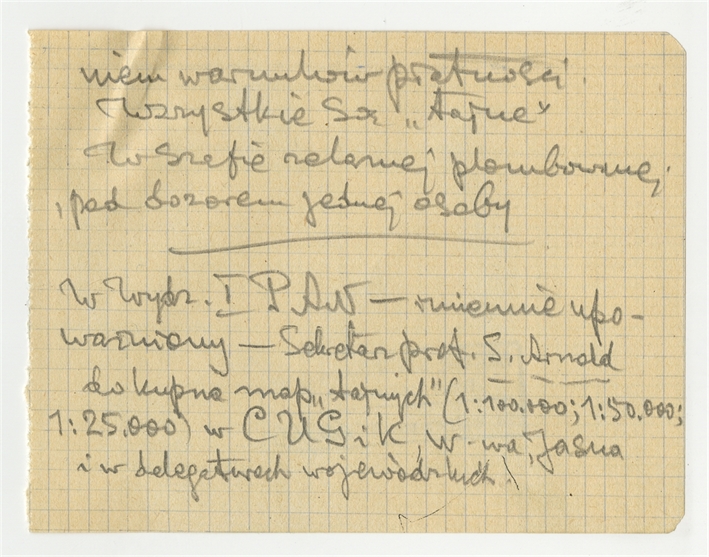 niem warunków płatności.
Wszystkie są „tajne”
W szafie żelaznej plombownej,
pod dozorem jednej osoby
W Wydz. I PAN — imiennie upo-
ważniony — Sekretarz prof. S. Arnold
do kupna map „tajnych” (1:100.000; 1:50.000;
1:25.000) w CUGiK, W-wa, Jasna
i w delegaturach wojewódzkich.